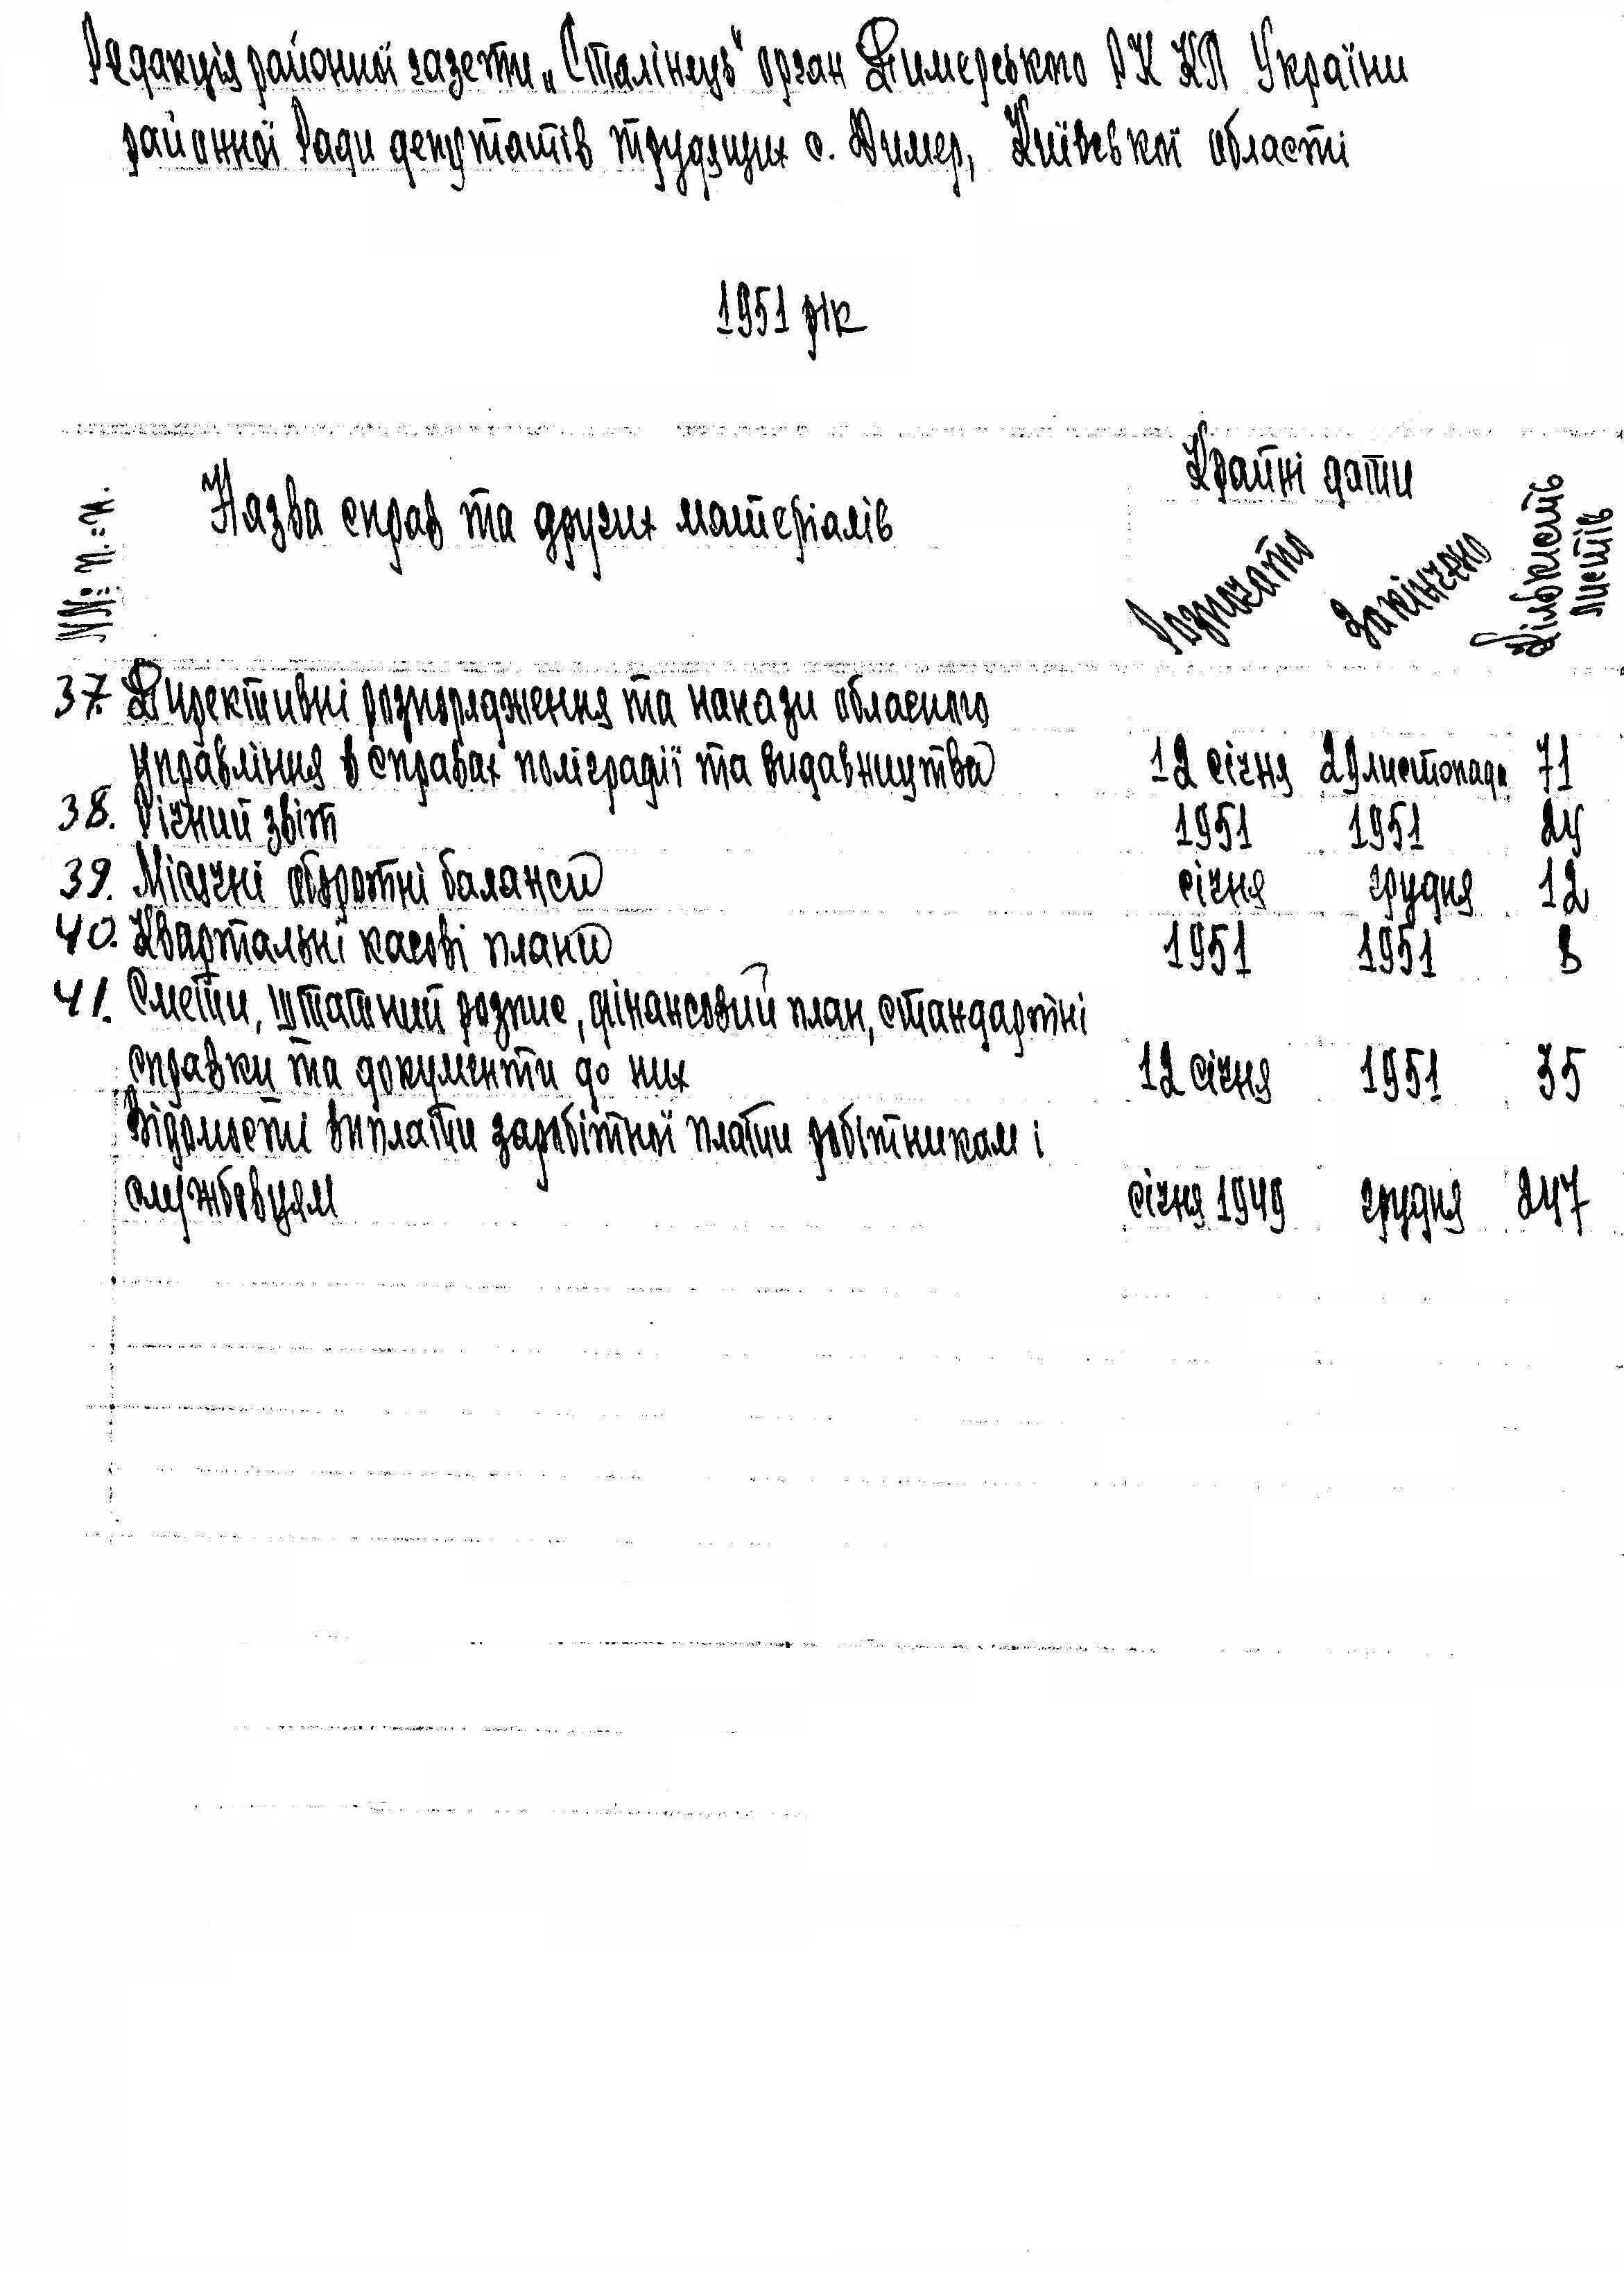 Редакція районної газети „Сталінець" орган Димерського РК КП України
районної Ради депутатів трудящих с. Димер, Київської області
1951 рік
NN: п.-п.
Назва справ та других матеріалів
Крайні дати
Розпочато
Закінчено
Кількість
листів
37. Директивні розпорядження та накази обласного
управління в справах поліграфії та видавництва 12 січня 29 листопада 71
38. Річний звіт 1951 1951 24
39. Місячні оборотні баланси січня грудня 12
40. Квартальні касові плани 1951 1951 8
41. Смети, штатний розпис, фінансовий план, стандартні
справки та документи до них 12 січня 1951 35
Відомості виплати заробітної плати робітникам і
службовцям січня 1949 грудня 247